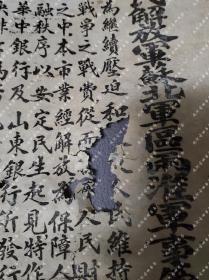 解放軍蘇北軍區兩淮軍事
為繼續壓迫和民維持
戰爭之戰費從人民財
之中本市業經解放為保障人
融秩序以安定民生起見特作
華中銀行及山東銀行所發行